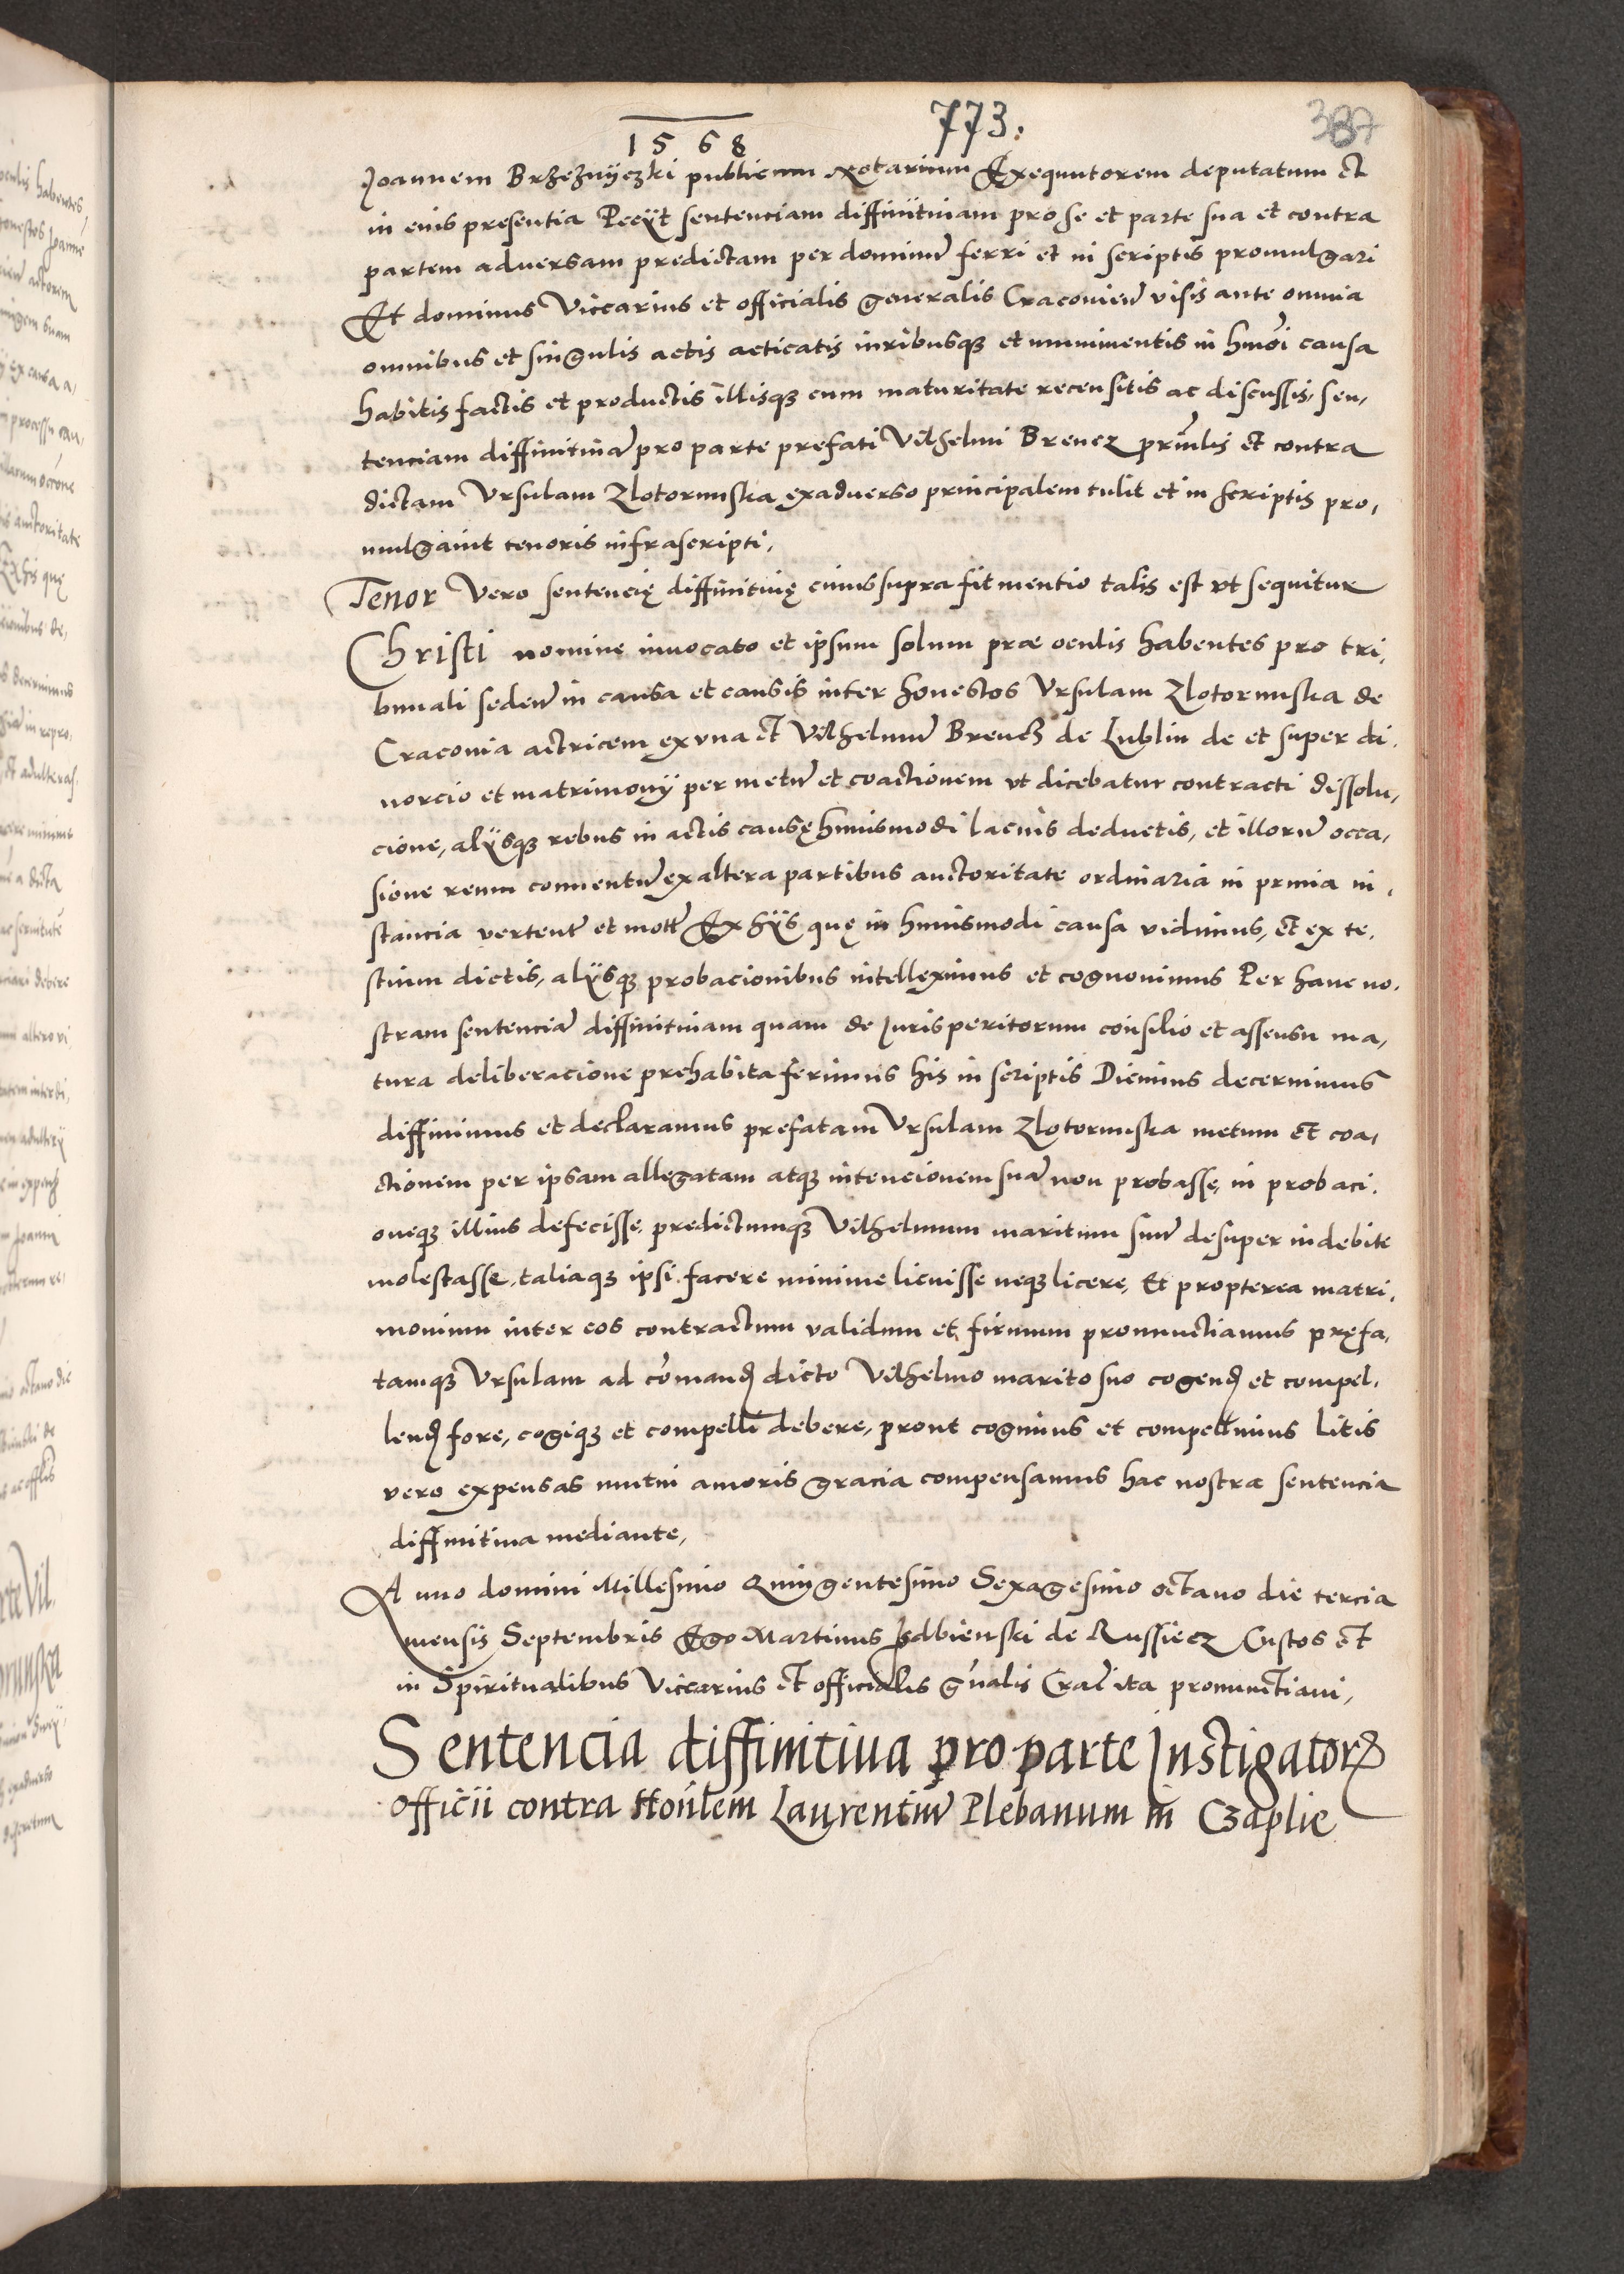 1568 773: 387
Joannem Brzeznyczki publicum Notarium Exequutorem deputatum et
in eius presentia Pecijt sentenciam diffinitiuam pro se et parte sua et contra
partem aduersam predictam per dominũ ferri et in scriptis promulgari
Et dominus Viccarius et officialis generalis Cracovieñ visis ante omnia
omnibus et singulis actis acticatis iuribusqꝫ et munimentis in hmõi causa
habitis factis et productis illisqꝫ cum maturitate recensitis ac discussis, sen,
tenciam diffinitiuã pro parte prefati Vilhelmi Brenez prĩnlis et contra
dictam Vrsulam Zlotorunska exaduerso principalem tulit et in scriptis pro,
mulgauit tenoris infrascripti,
Tenor Vero sentencię diffinitiuę cuius supra fit mentio talis est vt sequitur
Christi nomine inuocato et ipsum solum præ oculis habentes pro tri,
bunali sedeñ in causa et causis inter honestos Vrsulam Zlotorunska de
Craconia actricem ex vna et Vilhelmũ Brenecz de Lublin de et super di,
uorcio et matrimonij per metũ et coactionem vt dicebatur contracti dissolu,
cione, alijsqꝫ rebus in actis causę huiusmodi lacius deductis, et illorũ occa,
sione reum conuentũ ex altera partibus auctoritate ordinaria in prima in,
stancia verteñt et mott Ex hijs quę in huiusmodi causa vidimus, et ex te,
stium dictis, alijsqꝫ probacionibus intelleximus et cognouimus Per hanc no,
stram sentenciã diffinitiuam quam de Jurisperitorum consilio et assensu ma,
tura deliberacione prehabita ferimus his in scriptis Dicimus decernimus
diffinimus et declaramus prefatam Vrsulam Zlotorunska metum et coa,
ctionem per ipsam allegatam atqꝫ intencionem suã non probasse, in probaci,
oneqꝫ illius defecisse, predictumqꝫ Vilhelmum maritum suũ desuper indebite
molestasse, taliaqꝫ ipsi facere minime licuisse neqꝫ licere, Et propterea matri,
monium inter eos contractum validum et firmum pronunctiamus pręfa,
tamqꝫ Vrsulam ad cõmanđ dicto Vilhelmo marito suo cogenđ et compel,
lenđ fore, cogiqꝫ et compelli debere, prout cogimus et compellimus Litis
vero expensas mutui amoris gracia compensamus hac nostra sentencia
diffinitiua mediante,
Anno domini Millesimo Quingentesimo Sexagesimo octauo die tercia
mensis Septembris Ego Martinus Izdbienski de Russiecz Custos et
in Spiritualibus Viccarius et officialis gñalis Crac̃ ita pronunctiaui,
Sentencia diffinitiua pro parte Instigatorꝭ
officii contra Honlem Laurentiũ Plebanum in Czaplie